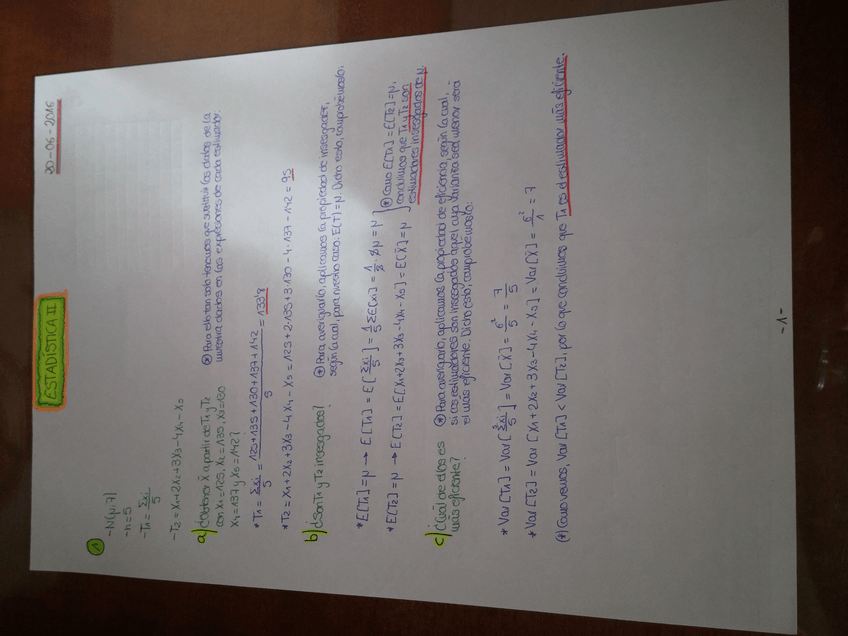 20-06-2016
ESTADÍSTICA II
1
-N(μ,7)
-n=5
-T1 = Σxi/5
-T2 = X1+2X2+3X3-4X4-X5
a) ¿Obtener X̄ a partir de T1 y T2
con X1=125, X2=135, X3=130
X4=137 y X5=142?
* Para ello tan solo tenemos que sustituir los datos de la
muestra dados en las expresiones de cada estimador:
*T1 = Σxi/5 = 125+135+130+137+142/5 = 133'8
*T2 = X1+2X2+3X3-4X4-X5 = 125+2·135+3·130-4·137-142 = 95
b) ¿Son T1 y T2 insesgados?
* Para averiguarlo, aplicamos la propiedad de insesgadez,
según la cual, para nuestro caso: E(T)=μ. Dicho esto, comprobémoslo:
*E[T1]=μ → E[T1] = E[Σxi/5] = 1/5 ΣE[xi] = 1/5·5μ = μ
*E[T2]=μ → E[T2] = E[X1+2X2+3X3-4X4-X5] = E[X̄] = μ
* Como E[T1]=E[T2]=μ,
concluimos que T1 y T2 son
estimadores insesgados de μ.
c) ¿Cuál de ellos es
más eficiente?
* Para averiguarlo, aplicamos la propiedad de eficiencia, según la cual,
si los estimadores son insesgados aquel cuya varianza sea menor será
el más eficiente. Dicho esto, comprobémoslo:
*Var[T1] = Var[Σxi/5] = Var[X̄] = σ²/5 = 7/5
*Var[T2] = Var[X1+2X2+3X3-4X4-X5] = Var[X̄] = σ²/1 = 7
(*) Como vemos, Var[T1] < Var[T2], por lo que concluimos que T1 es el estimador más eficiente.
-1-